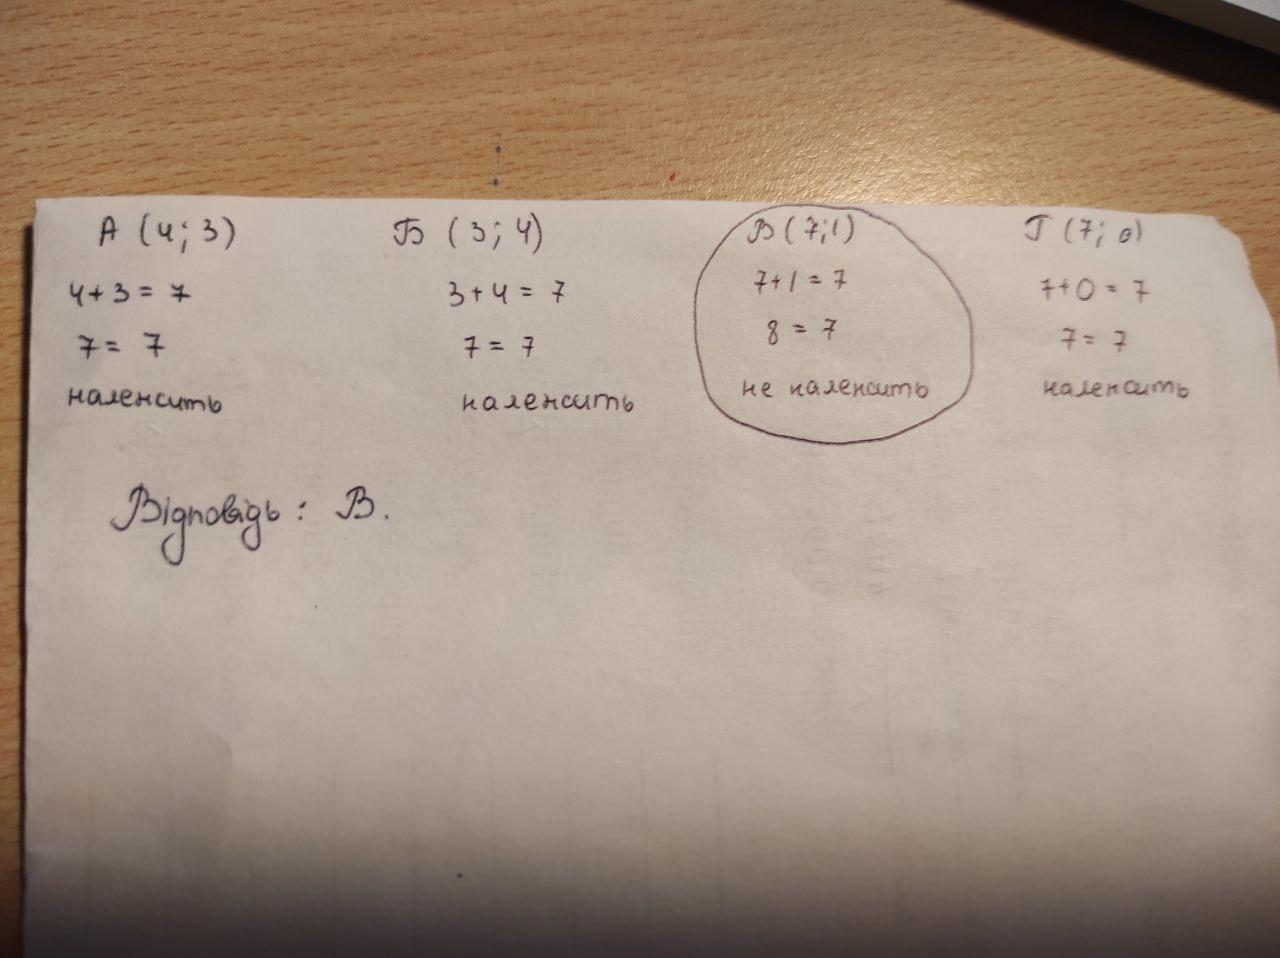 А (4; 3)
4+3 = 7
7 = 7
належить
Б (3; 4)
3+4 = 7
7 = 7
належить
В (7;1)
7+1 = 7
8 = 7
не належить
Г (7; 0)
7+0 = 7
7 = 7
належить
Відповідь: В.